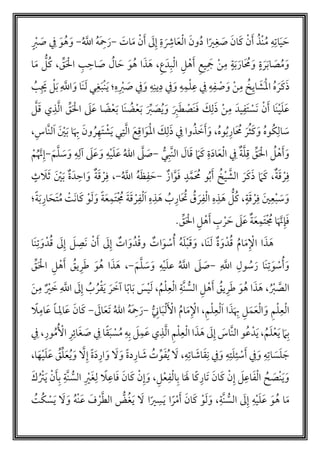 حَيَاتِهِ مُنْذُ أَنْ كَانَ صَغِيرًا دُونَ الْعَاشِرَةِ إِلَى أَنْ مَاتَ -رَحِمَهُ اللَّهُ- وَهُوَ فِي صَبْرٍ
وَمُصَابَرَةٍ وَمُحَارَبَةٍ مِنْ جَمِيعِ أَهْلِ الْبِدَعِ، هَذَا هُوَ حَالُ صَاحِبِ الْحَقِّ، كُلُّ مَا
ذَكَرَهُ الْمَشَايِخُ مِنْ وَصْفِهِ فِي عِلْمِهِ وَفِي دِينِهِ وَفِي صَبْرِهِ؛ يَنْبَغِي لَنَا وَاللَّهِ بَلْ يَجِبُ
عَلَيْنَا أَنْ نَسْتَفِيدَ مِنْ ذَلِكَ فَنَصْطَبِرَ وَيُصَبِّرَ بَعْضُنَا بَعْضًا عَلَى الْحَقِّ الَّذِي قَلَّ
سَالِكُوهُ وَكَثُرَ مُحَارِبُوهُ، وَأَخَذُوا فِي ذَلِكَ الْمَوَاقِعَ الَّتِي يَشْتَهِرُونَ بِهَا بَيْنَ النَّاسِ،
وَأَهْلُ الْحَقِّ قِلَّةٌ فِي هَذِهِ السَّاعَةِ كَمَا قَالَ النَّبِيُّ -صَلَّى اللَّهُ عَلَيْهِ وَعَلَى آلِهِ وَسَلَّمَ- إِنَّهُمْ
فِرْقَةٌ، كَمَا ذَكَرَ الشَّيْخُ أَبُو مُحَمَّدٍ فَوَّازٌ -حَفِظَهُ اللَّهُ- فِرْقَةٌ وَاحِدَةٌ بَيْنَ ثَلَاثٍ
وَسَبْعِينَ فِرْقَةٍ، كُلُّ هَذِهِ الْفِرَقِ تُحَارِبُ هَذِهِ الْفِرْقَةَ الْمُجْتَمِعَةَ وَلَوْ كَانَتْ مُتَحَارِبَةً؛
فَإِنَّهَا مُجْتَمِعَةٌ عَلَى حَرْبِ أَهْلِ الْحَقِّ.
هَذَا الْإِمَامُ قُدْوَةٌ لَنَا، وَقَبْلَهُ أُسْوَاتٌ وَقُدْوَاتٌ إِلَى أَنْ نَصِلَ إِلَى قُدْوَتِنَا
وَأُسْوَتِنَا رَسُولِ اللَّهِ -صَلَّى اللَّهُ عَلَيْهِ وَسَلَّمَ-، هَذَا هُوَ طَرِيقُ أَهْلِ الْحَقِّ
الصَّبْرُ، هَذَا هُوَ طَرِيقُ أَهْلِ السُّنَّةِ الْعِلْمُ، لَيْسَ بَابًا آخَرَ يُقَرِّبُ إِلَى اللَّهِ خَيْرٌ مِنَ
الْعِلْمِ وَالْعَمَلِ بِهَذَا الْعِلْمِ، الْإِمَامُ الْأَلْبَانِيُّ -رَحِمَهُ اللَّهُ تَعَالَى- كَانَ عَالِمًا عَامِلًا
بِمَا يَعْلَمُ، يَدْعُو النَّاسَ إِلَى هَذَا الْعِلْمِ الَّذِي عَمِلَ بِهِ مُسْبَقًا فِي صَغَائِرِ الْأُمُورِ، فِي
جَلَسَاتِهِ وَفِي اسْتِلْقَائِهِ وَفِي نِقَاشَاتِهِ، لَا يُفَوِّتُ شَارِدَةً وَلَا وَارِدَةً إِلَّا وَيُعَلِّقُ عَلَيْهَا،
وَيَنْصَحُ الْفَاعِلَ إِنْ كَانَ تَارِكًا لِهَذَا الْفِعْلِ، وَإِنْ كَانَ فَاعِلًا لِغَيْرِ السُّنَّةِ بِأَنْ يَتْرُكَ
مَا هُوَ عَلَيْهِ إِلَى السُّنَّةِ، وَلَوْ كَانَ أَمْرًا يَسِيرًا لَا يَغُضُّ الطَّرْفَ عَنْهُ وَلَا يَسْكُتُ